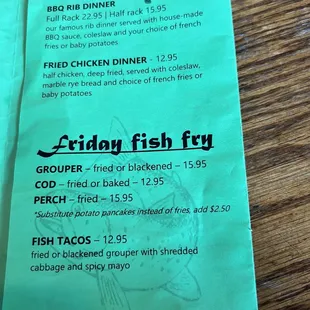 BBQ RIB DINNER
Full Rack 22.95 | Half rack 15.95
our famous rib dinner served with house-made
BBQ sauce, coleslaw and your choice of french
fries or baby potatoes
FRIED CHICKEN DINNER - 12.95
half chicken, deep fried, served with coleslaw,
marble rye bread and choice of french fries or
baby potatoes
Friday fish fry
GROUPER – fried or blackened – 15.95
COD – fried or baked – 12.95
PERCH – fried – 15.95
*Substitute potato pancakes instead of fries, add $2.50
FISH TACOS – 12.95
fried or blackened grouper with shredded
cabbage and spicy mayo